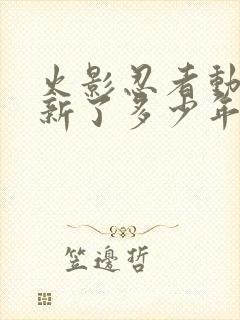 火影忍者動
新了多少年
笠邊哲